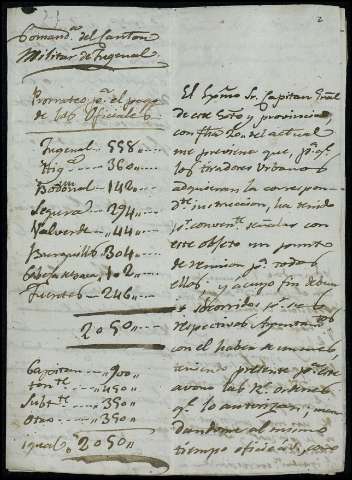 2
Comand.ª del Canton
Militar de Fregenal
Prorrateo p.ª el pago
de los Oficiales
Fregenal - 558 ,,
Hig.ª - 360 ,,
Bodonal - 142 ,,
Segura - 294 ,,
Valverde - ,, 44 ,,
Burguillos 304 ,,
Cabeza la Vaca 102 ,,
Fuentes - 246 ,,
2050 ,,
Capitan - ,, 900 ,,
ten.te - ,, 450 ,,
Subt.te - ,, 350 ,,
Otro - ,, 350 ,,
igual 2050 ,,
El Exmo Sr. Capitan Gral
de este Egto y provincia
con fha 20 del actual
me previene que, p.ª q.e
los tiradores Urbanos
adquieran la correspon
d.te instruccion, ha tenido
p.r conven.te señalar con
este objeto un punto
de reunion p.ª todos
ellos, y a cuyo fin deben
socorridos p.r
respectivos Ayuntam.tos
con el haber de
teniendo presente p.ª este
abono las R.s ordenes
q.e lo autorizan, man
dandome al mismo
tiempo oficie á